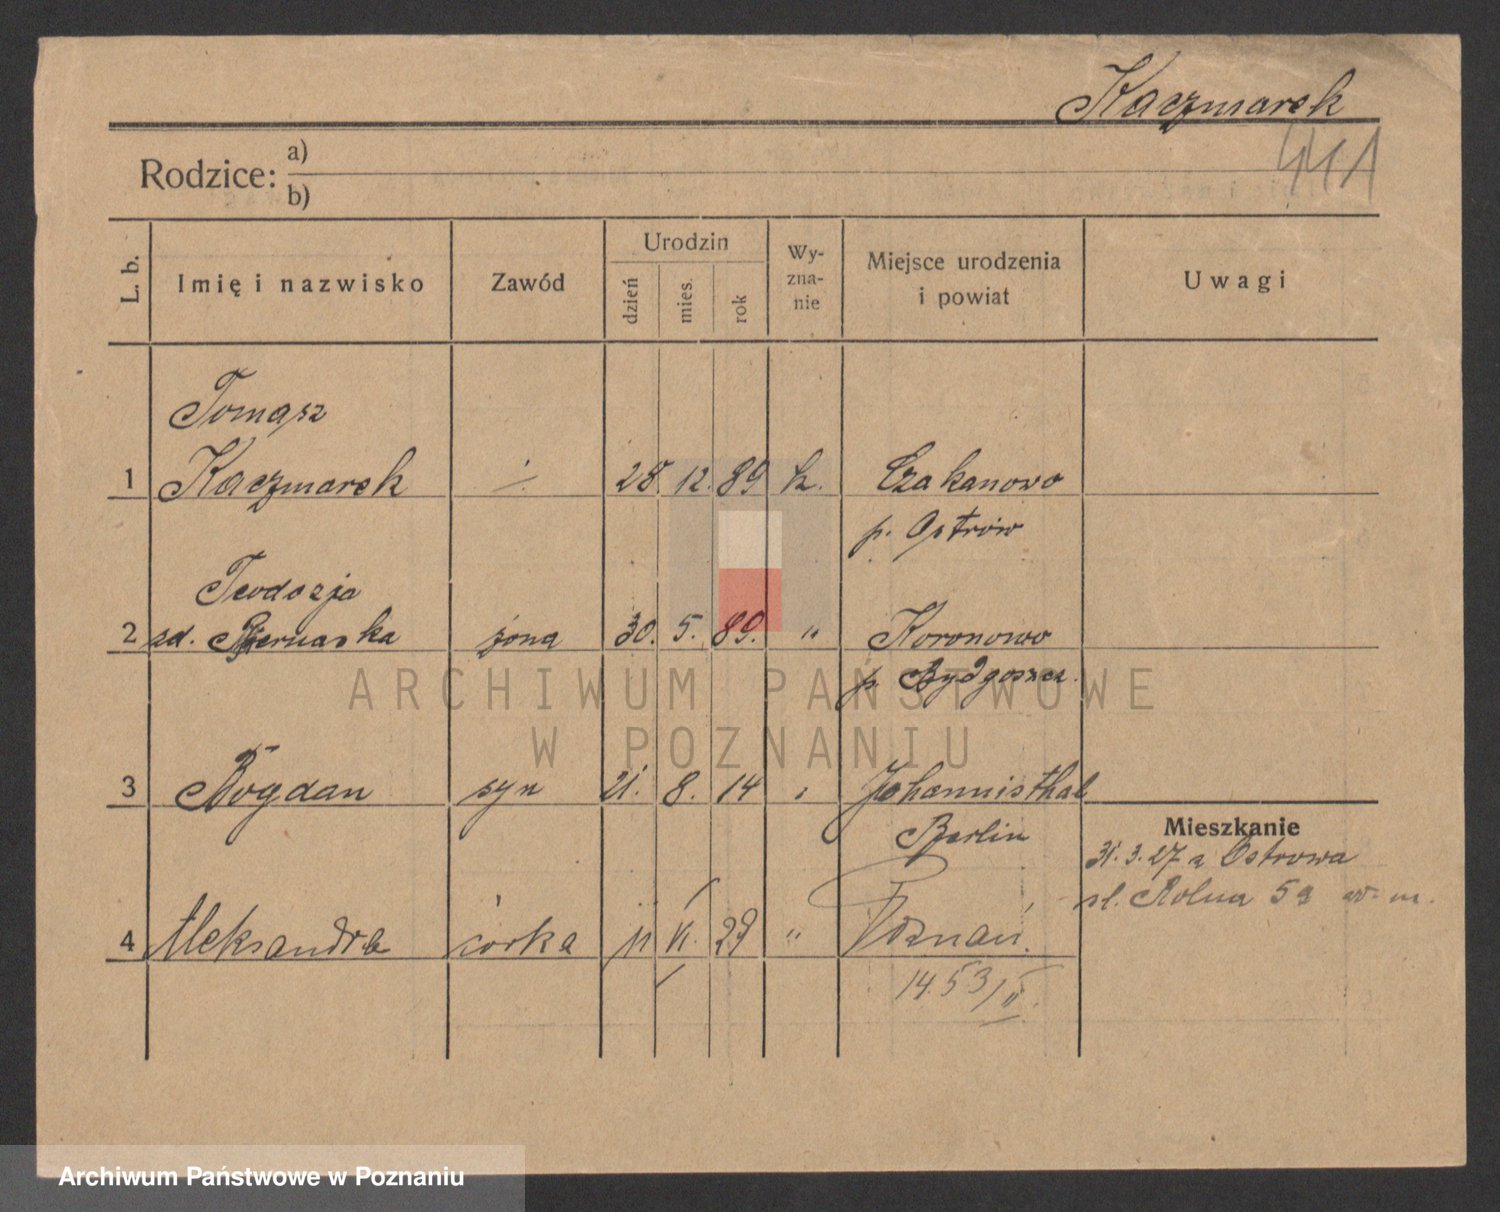 Kaczmarek
Rodzice: a)
b)
L. b.
Imię i nazwisko
Zawód
Urodzin
dzień
mies.
rok
Wy-
zna-
nie
Miejsce urodzenia
i powiat
Uwagi
Tomasz
1 Kaczmarek ./. 28. 12. 89 k. Czakanowo
p. Ostrów
Teodozja
2 zd. żona 30. 5. 89. " Koronowo
p. Bydgoszcz.
ARCHIWUM PAŃSTWOWE
W POZNANIU
3 Bogdan syn 21. 8. 14 " Johannisthal
Berlin
Mieszkanie
31. 3. 27 z Ostrowa
ul. Rolna 59 w. m.
4 Aleksandra córka 11 VI. 29 " Poznań.
1453/II.
Archiwum Państwowe w Poznaniu